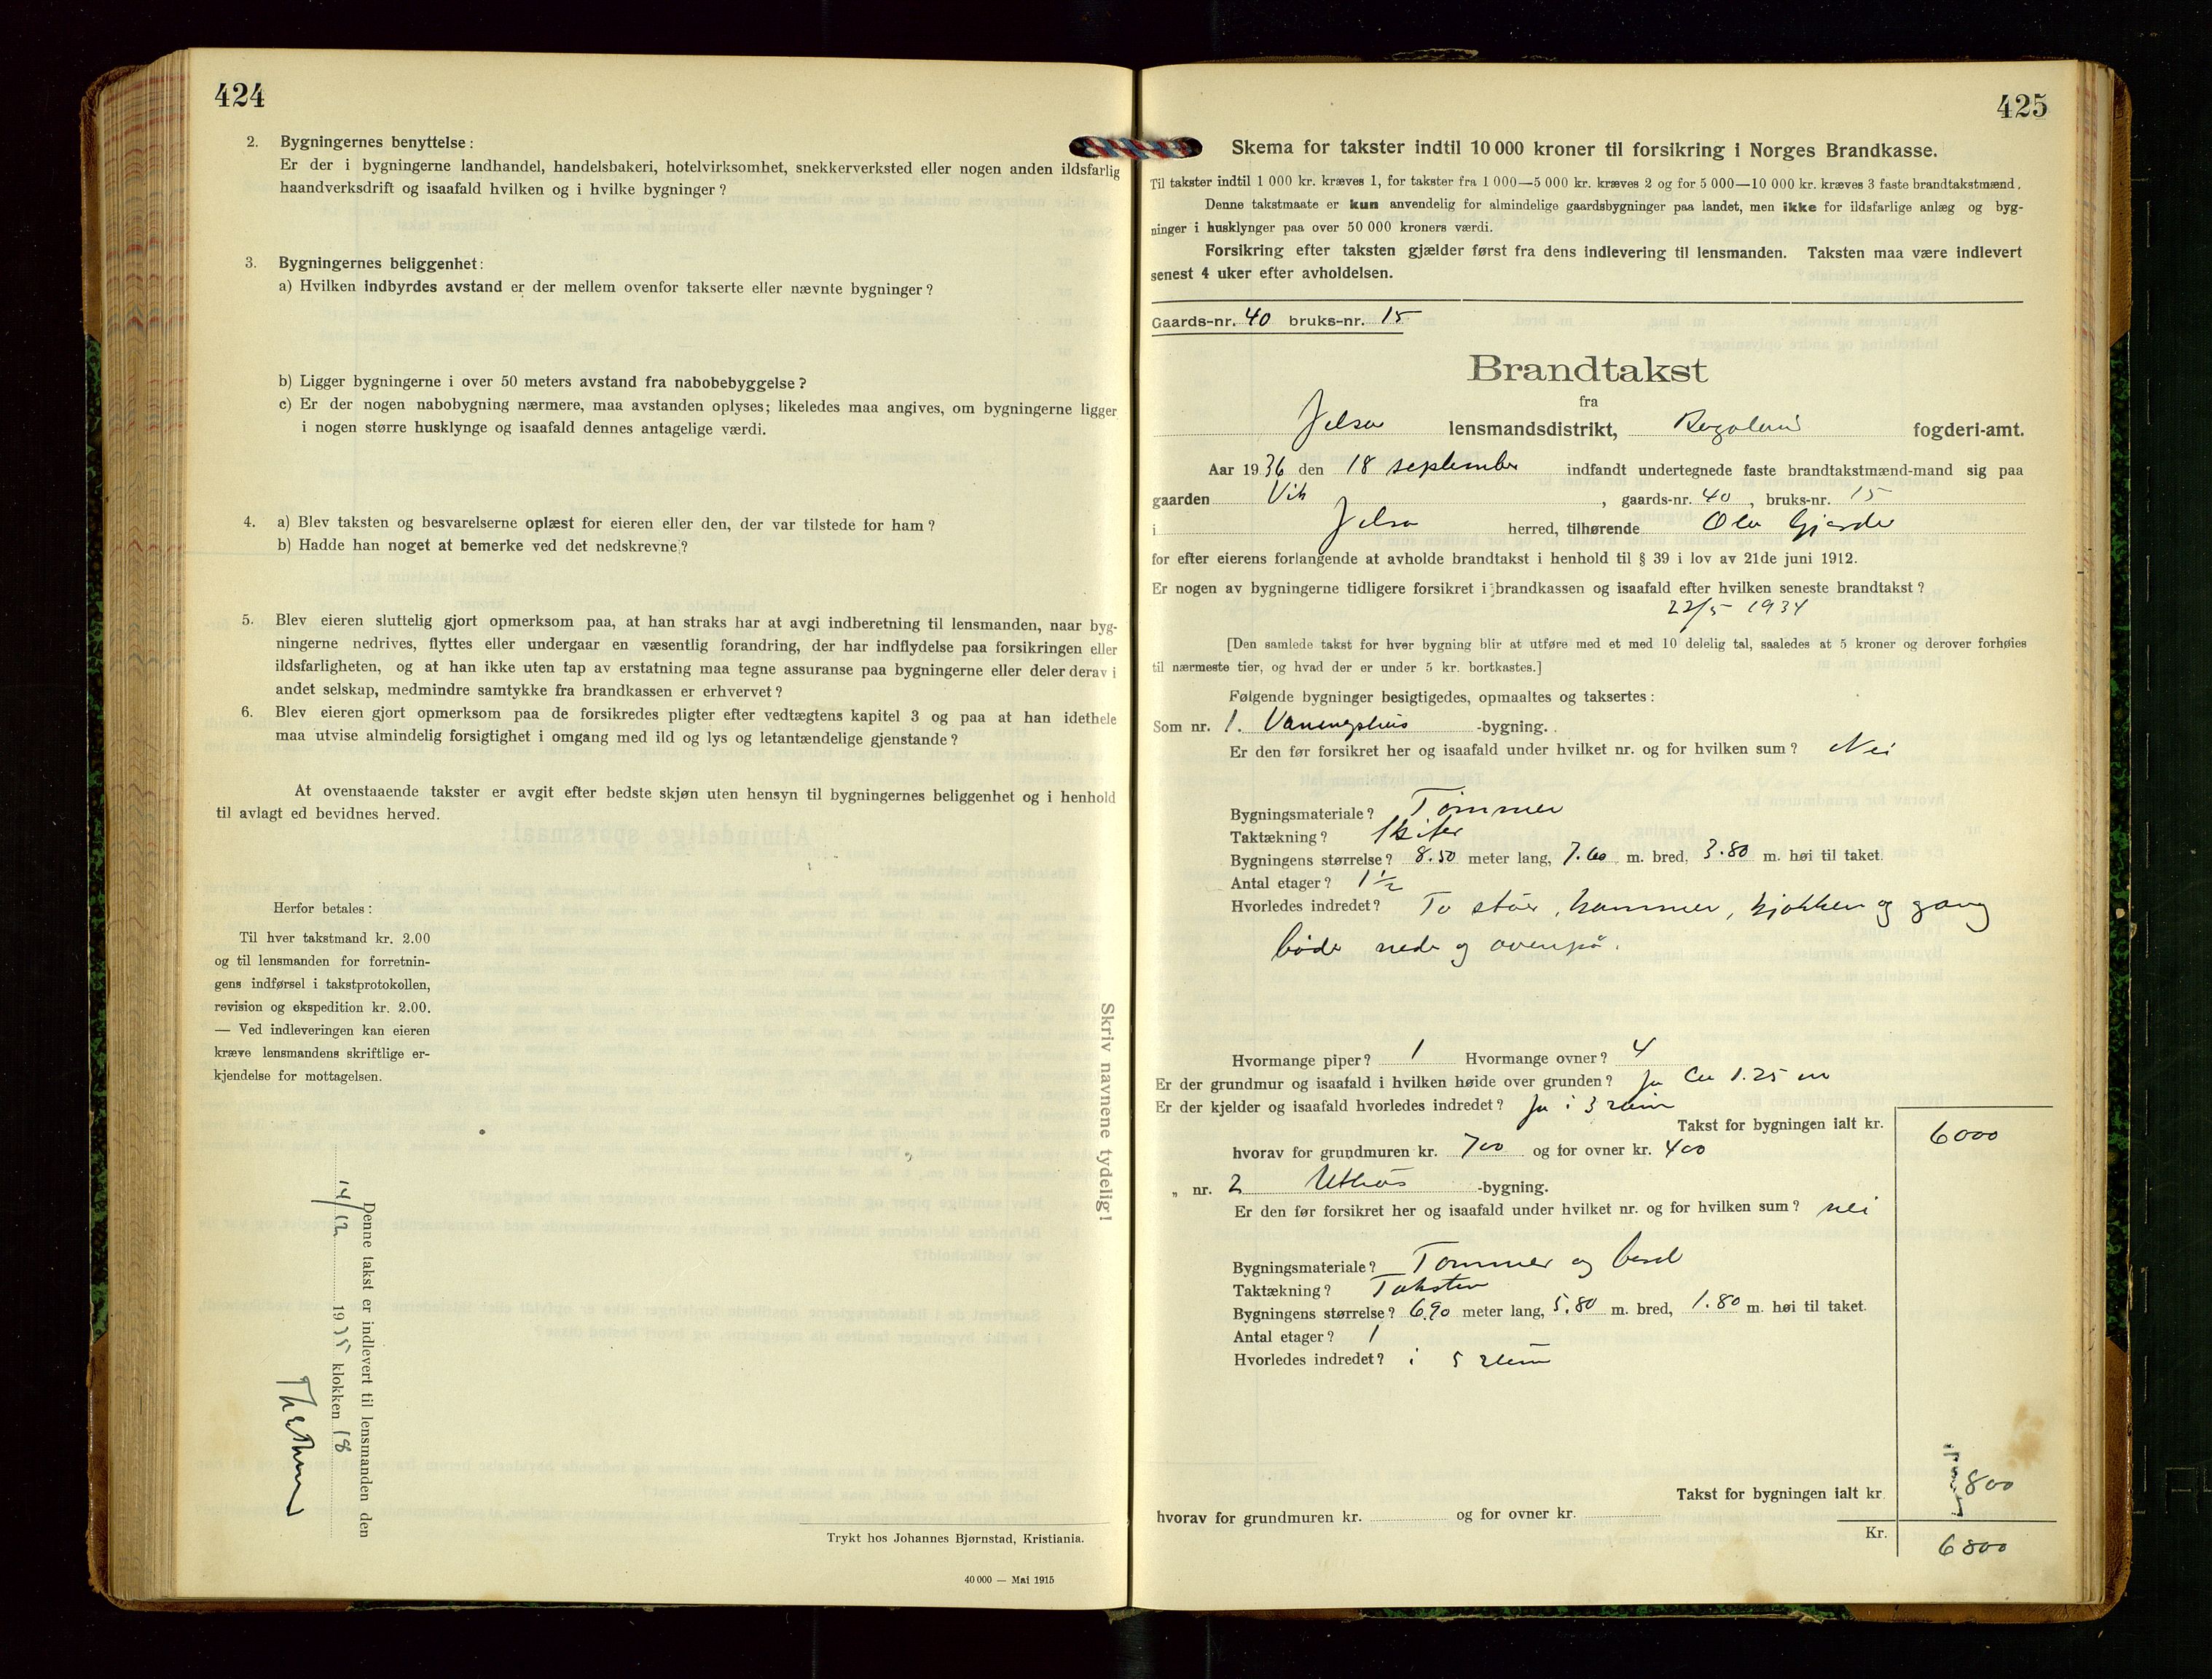 424
2. Bygningernes benyttelse:
Er der i bygningerne landhandel, handelsbakeri, hotelvirksomhet, snekkerverksted eller nogen anden ildsfarlig
haandverksdrift og isaafald hvilken og i hvilke bygninger?
3. Bygningernes beliggenhet:
a) Hvilken indbyrdes avstand er der mellem ovenfor takserte eller nævnte bygninger?
b) Ligger bygningerne i over 50 meters avstand fra nabobebyggelse?
c) Er der nogen nabobygning nærmere, maa avstanden oplyses; likeledes maa angives, om bygningerne ligger
i nogen større husklynge og isaafald dennes antagelige værdi.
4. a) Blev taksten og besvarelserne oplæst for eieren eller den, der var tilstede for ham?
b) Hadde han noget at bemerke ved det nedskrevne?
5. Blev eieren sluttelig gjort opmerksom paa, at han straks har at avgi indberetning til lensmanden, naar byg-
ningerne nedrives, flyttes eller undergaar en væsentlig forandring, der har indflydelse paa forsikringen eller
ildsfarligheten, og at han ikke uten tap av erstatning maa tegne assuranse paa bygningerne eller deler derav i
andet selskap, medmindre samtykke fra brandkassen er erhvervet?
6. Blev eieren gjort opmerksom paa de forsikredes pligter efter vedtægtens kapitel 3 og paa at han idethele
maa utvise almindelig forsigtighet i omgang med ild og lys og letantændelige gjenstande?
At ovenstaaende takster er avgit efter bedste skjøn uten hensyn til bygningernes beliggenhet og i henhold
til avlagt ed bevidnes herved.
Herfor betales:
Til hver takstmand kr. 2.00
og til lensmanden for forretnin-
gens indførsel i takstprotokollen,
revision og ekspedition kr. 2.00.
— Ved indleveringen kan eieren
kræve lensmandens skriftlige er-
kjendelse for mottagelsen.
Skriv navnene tydelig!
Denne takst er indlevert til lensmanden den
14/12 1935 klokken 18
Trykt hos Johannes Bjørnstad, Kristiania.
40 000 — Mai 1915
425
Skema for takster indtil 10 000 kroner til forsikring i Norges Brandkasse.
Til takster indtil 1 000 kr. kræves 1, for takster fra 1 000—5 000 kr. kræves 2 og for 5 000—10 000 kr. kræves 3 faste brandtakstmænd.
Denne takstmaate er kun anvendelig for almindelige gaardsbygninger paa landet, men ikke for ildsfarlige anlæg og byg-
ninger i husklynger paa over 50 000 kroners værdi.
Forsikring efter taksten gjælder først fra dens indlevering til lensmanden. Taksten maa være indlevert
senest 4 uker efter avholdelsen.
Gaards-nr. 40 bruks-nr. 15
Brandtakst
fra
Jelsa lensmandsdistrikt, Rogaland fogderi-amt.
Aar 1936 den 18 september indfandt undertegnede faste brandtakstmænd-mand sig paa
gaarden Vik, gaards-nr. 40, bruks-nr. 15
i Jelsa herred, tilhørende Ola Gjerde
for efter eierens forlangende at avholde brandtakst i henhold til § 39 i lov av 21de juni 1912.
Er nogen av bygningerne tidligere forsikret i brandkassen og isaafald efter hvilken seneste brandtakst?
22/5 1934
[Den samlede takst for hver bygning blir at utføre med et med 10 delelig tal, saaledes at 5 kroner og derover forhøies
til nærmeste tier, og hvad der er under 5 kr. bortkastes.]
Følgende bygninger besigtigedes, opmaaltes og taksertes:
Som nr. 1. Vaningshus -bygning.
Er den før forsikret her og isaafald under hvilket nr. og for hvilken sum? Nei
Bygningsmateriale? Tømmer
Taktækning? Skifer
Bygningens størrelse? 8.50 meter lang, 7.60 m. bred, 3.80 m. høi til taket.
Antal etager? 1 1/2
Hvorledes indredet? To stuer, kammer, kjøkken og gang
både nede og ovenpå.
Hvormange piper? 1 Hvormange ovner? 4
Er der grundmur og isaafald i hvilken høide over grunden? Ja Ca 1.25 m
Er der kjelder og isaafald hvorledes indredet? Ja i 3 rum
Takst for bygningen ialt kr. 6000
hvorav for grundmuren kr. 700 og for ovner kr. 400
„ nr. 2 Uthus -bygning.
Er den før forsikret her og isaafald under hvilket nr. og for hvilken sum? nei
Bygningsmateriale? Tømmer og bord
Taktækning? Taksten
Bygningens størrelse? 6.90 meter lang, 5.80 m. bred, 1.80 m. høi til taket.
Antal etager? 1
Hvorledes indredet? i 5 rum
Takst for bygningen ialt kr. 800
hvorav for grundmuren kr. og for ovner kr.
Kr. 6800